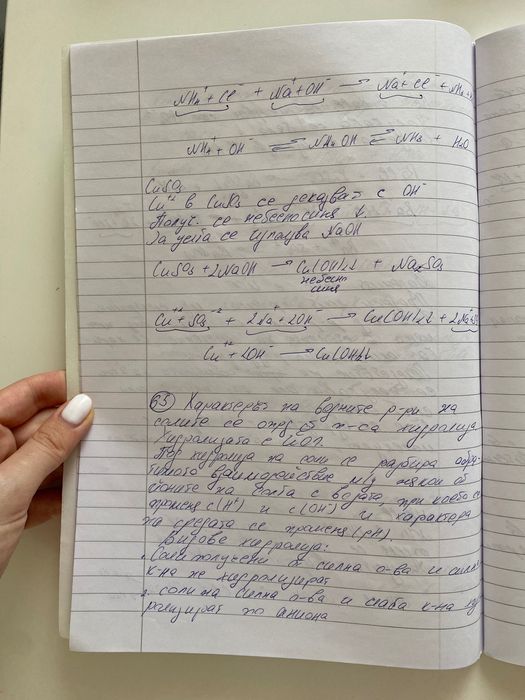 NH₄⁺ + Cl⁻ + Na⁺ + OH⁻ → Na⁺ + Cl⁻ + NH₄
NH₄⁺ + OH⁻ ⇌ NH₄OH ⇌ NH₃ + H₂O
CuSO₃
Cu⁺² в се доказват с OH⁻
Получ. се небесносиня ↓.
За целта се използва NaOH
CuSO₃ + 2NaOH → Cu(OH)₂↓ + Na₂SO₃
небесно
синя
Cu⁺² + SO₃⁻² + 2Na⁺ + 2OH⁻ → Cu(OH)₂↓ + 2Na⁺
Cu⁺² + 2OH⁻ → Cu(OH)₂↓
65 Характерът на водните р-ри на
солите се опр. от п-са хидролиза
Хидролизата с H₂O.
Под хидролиза на соли се разбира обра-
тимото взаимодействие м/у някои от
йоните на солта с водата, при което се
променя c(H⁺) и c(OH⁻) и характера
на средата се променя (pH).
Видове хидролиза:
1. Соли получени от силна о-ва и силна
к-на не хидролизират
2. соли на силна о-ва и слаба к-на хид
ролизират по аниона